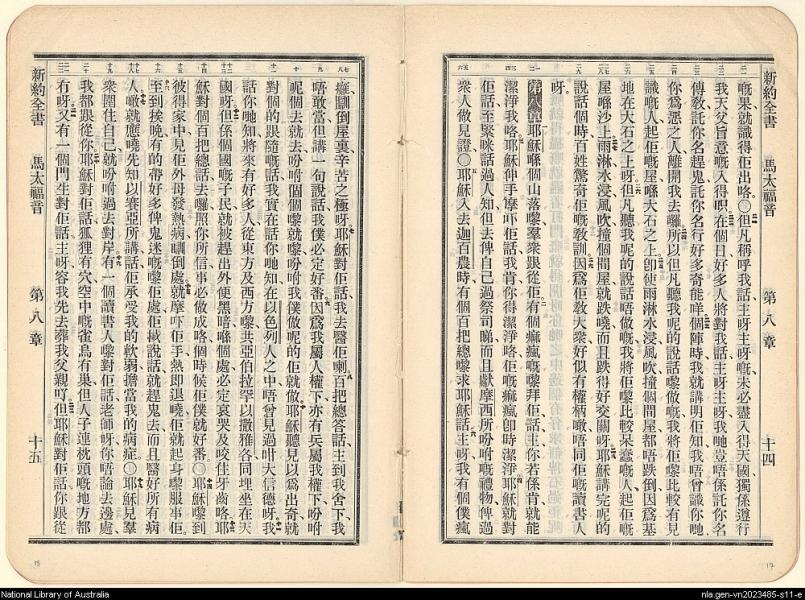 新約全書 馬太福音 第八章 十四
嘅果就識得佢出咯○但凡稱呼我話主呀主呀嘅未必盡入得天國獨係遵行
我天父旨意嘅入得呮在個日好多人將對我話主呀主呀我哋豈唔係託你名
傳敎託你名趕鬼託你名行好多奇能咩個陣時我就講明佢知我唔曾識你哋
你爲惡之人離開我去囉所以但凡聽我呢的說話嚟做嘅我將佢嚟比較有見
識嘅人起佢嘅屋喺大石之上卽使雨淋水浸風吹撞個間屋都唔跌倒因爲基
地在大石之上呀但凡聽我呢的說話唔做嘅我將佢嚟比較呆蠢嘅人起佢嘅
屋喺沙上雨淋水浸風吹撞個間屋就跌曉而且跌得好交關呀耶穌講完呢的
說話個時百姓驚奇佢嘅敎訓因爲佢敎大衆好似有權柄噉唔同佢嘅讀書人
呀
第八章耶穌喺個山落嚟羣衆跟從佢有個痲瘋嘅嚟拜佢話主你若係肯就能
潔淨我咯耶穌伸手摩吓佢話我肯你得潔淨咯佢嘅痲瘋卽時潔淨耶穌就對
佢話至緊咪話過人知但去俾自己過祭司睇而且獻摩西所吩咐嘅禮物俾過
衆人做見證○耶穌入去迦百農時有個百把總嚟求耶穌話主呀我有個僕瘋
癱瞓倒屋裏辛苦之極呀耶穌對佢話我去醫佢喇百把總答話主到我舍下我
唔敢當但講一句說話我僕必定好番因爲我屬人權下亦有兵屬我權下吩咐
呢個去就去吩咐個個嚟就嚟吩咐我僕做呢的佢就做耶穌聽見以爲出奇就
對個的跟隨嘅話我實在話你哋知在以色列人之中唔曾見過咁大信德呀我
話你哋知將來有好多人從東方及西方嚟共亞伯拉罕以撒雅各同埋坐在天
國呀但係個國嘅子民就被趕出外便黑暗喺個處必定哀哭及咬住牙齒咯耶
穌對個百把總話去囉照你所信事必做成咯個時候佢僕就好番○耶穌嚟到
彼得家中見佢外母發熱病瞓倒處就摩吓佢手熱即退曉佢就起身嚟服事佢
至到挨晚有的帶好多俾鬼迷嘅嚟佢處佢揻說話就趕鬼去而且醫好所有病
人噉就應曉先知以賽亞所講話佢承受我的軟弱擔當我的病症○耶穌見羣
衆圍住自己就吩咐過去對岸有一個讀書人嚟對佢話老師呀你唔論去邊處
我都跟從你耶穌對佢話狐狸有穴空中嘅雀鳥有巢但人子連枕頭嘅地方都
冇呀又有一個門生對佢話主呀容我先去葬我父親吖但耶穌對佢話你跟從
新約全書 馬太福音 第八章 十五
National Library of Australia
nla.gen-vn2023485-s11-e